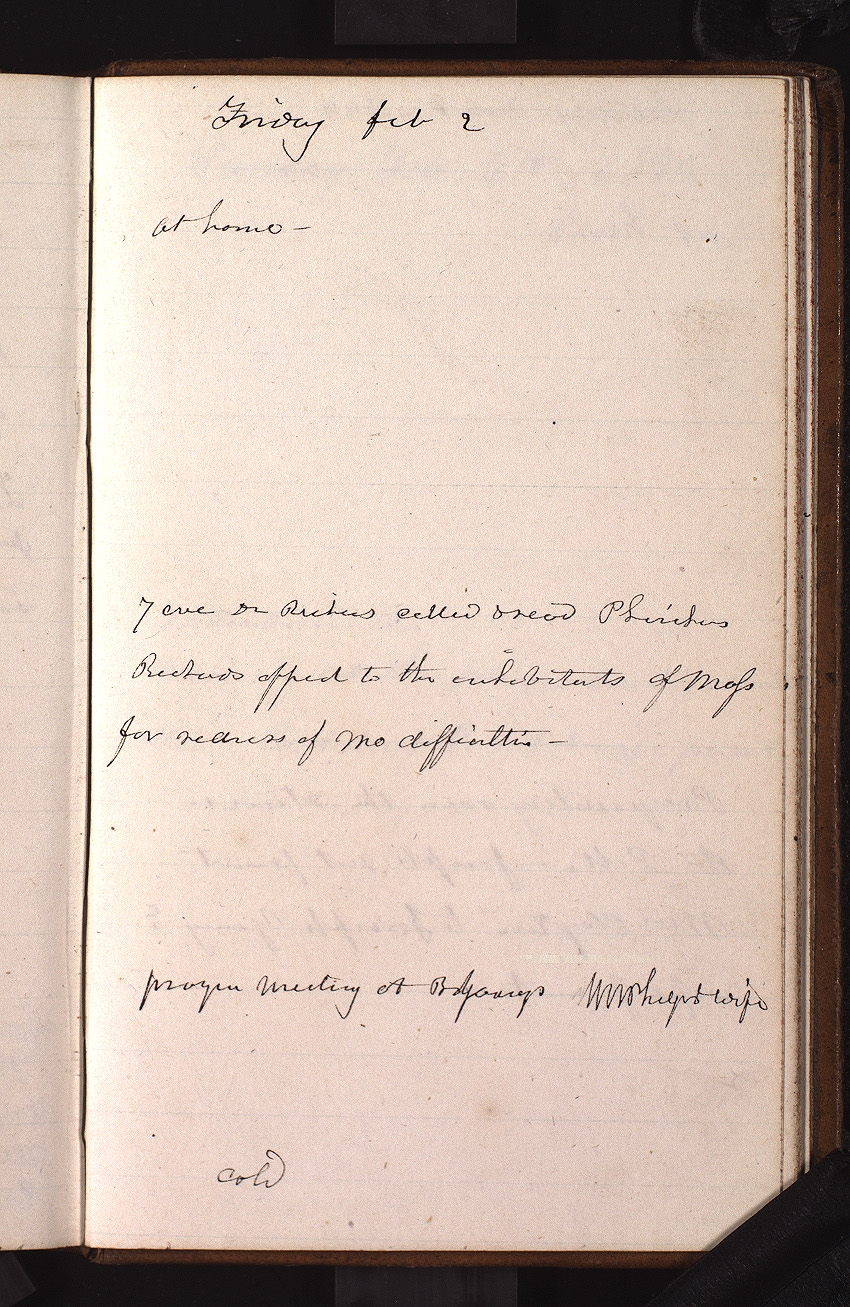 Friday feb 2
at home —
7 eve Dr Richards called & read Phinehas
Richards appeal to the inhabitants of Mass
for redress of Mo difficulties —
prayer meeting at B Youngs W W Phelps & wife
cold